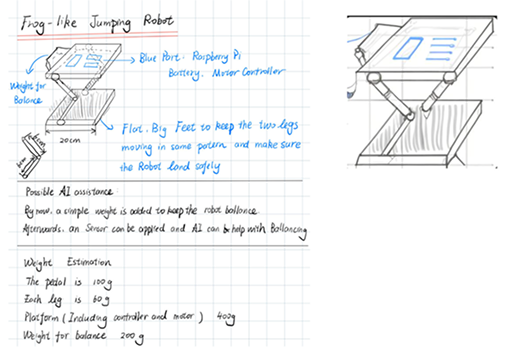 Frog-like Jumping Robot
Blue Part: Raspberry Pi
Battery. Motor Controller
Weight for
Balance
20cm
6cm
Flat. Big Feet to keep the two legs
moving in same pattern and make sure
the Robot land safely
Possible AI assistance
By now, a simple weight is added to keep the robot ballance
Afterwards, an Sensor can be applied and AI can help with Ballancing
Weight Estimation
The pedal is 100g
Each leg is 60g
Platform (Including controller and motor) 400g
Weight for balance 200g